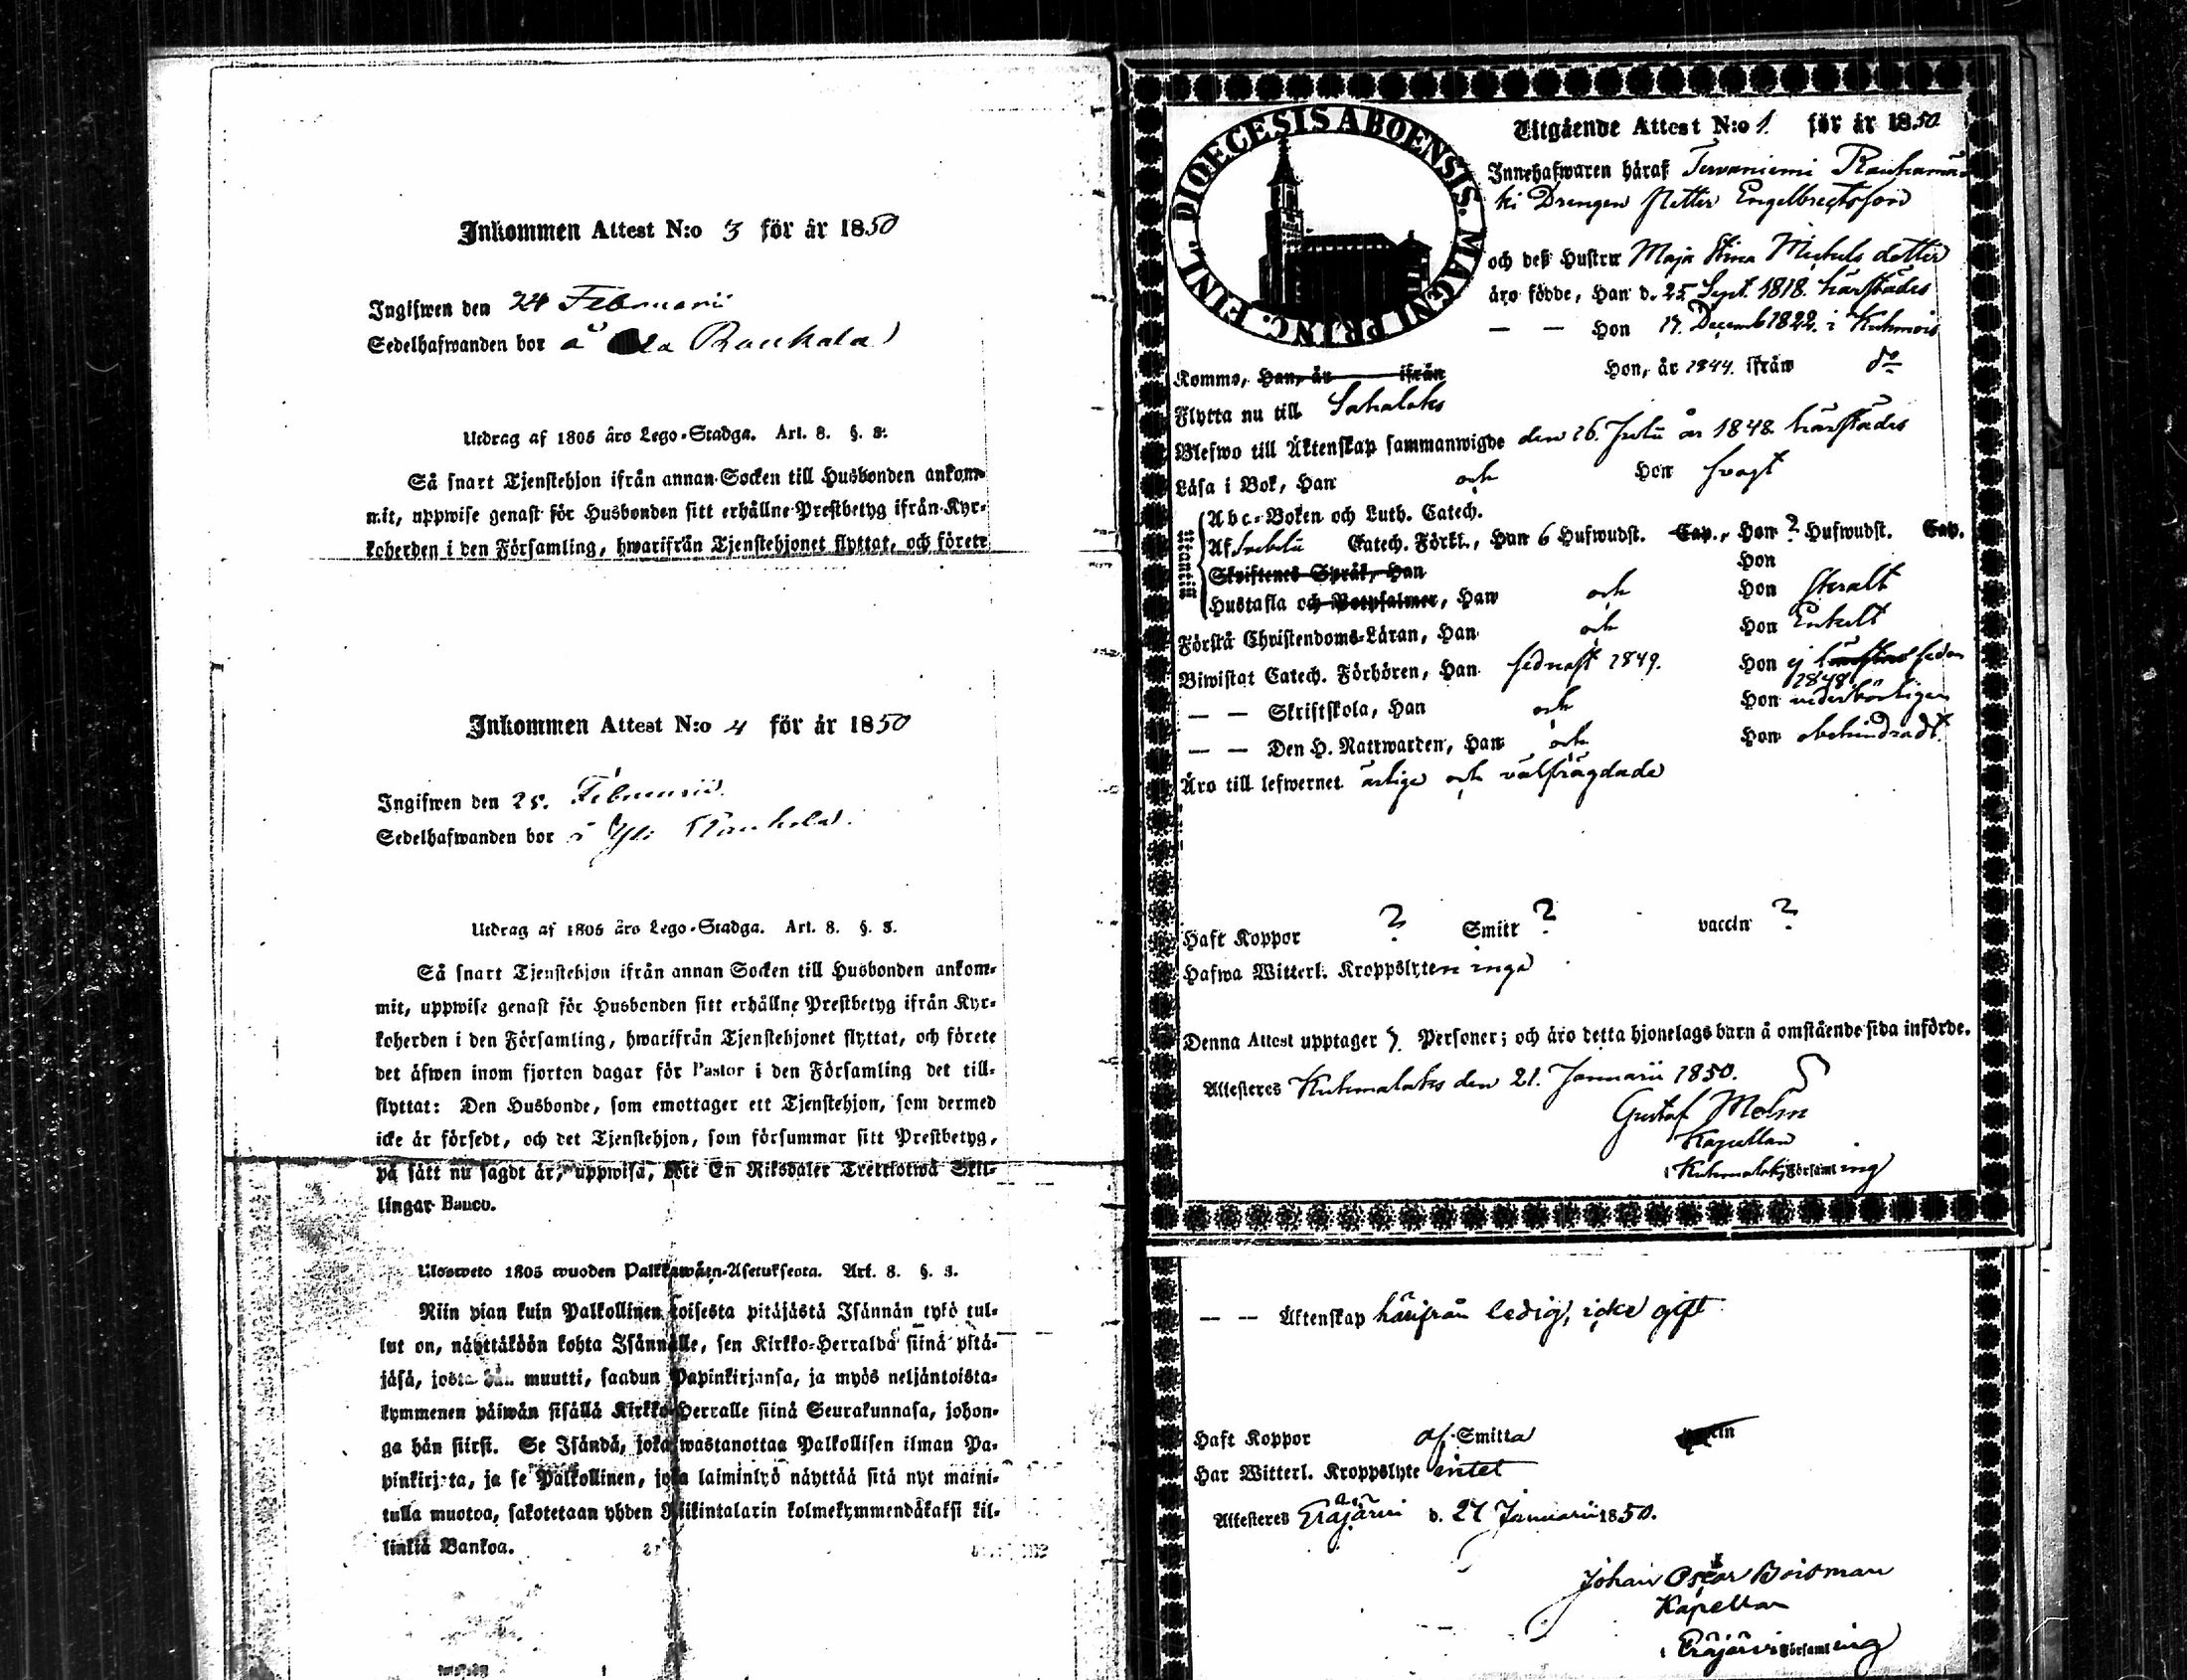 Inkommen Attest N:o 3 för år 1850
Ingifwen den 24 Februarii
Sedelhafwanden bor å Ala Rouhala
Utdrag af 1805 års Lego-Stadga. Art. 8. §. 3.
Så snart Tjenstehjon ifrån annan Socken till Husbonden ankom-
mit, uppwise genast för Husbonden sitt erhållne Prestbetyg ifrån Kyr-
koherden i den Församling, hwarifrån Tjenstehjonet flyttat, och förete
Inkommen Attest N:o 4 för år 1850
Ingifwen den 25. Februarii
Sedelhafwanden bor å Yli Rouhala
Utdrag af 1805 års Lego-Stadga. Art. 8. §. 3.
Så snart Tjenstehjon ifrån annan Socken till Husbonden ankom-
mit, uppwise genast för Husbonden sitt erhållne Prestbetyg ifrån Kyr-
koherden i den Församling, hwarifrån Tjenstehjonet flyttat, och förete
det äfwen inom fjorton dagar för Pastor i den Församling det till-
flyttat: Den Husbonde, som emottager ett Tjenstehjon, som dermed
icke är försedt, och det Tjenstehjon, som försummar sitt Prestbetyg,
på sätt nu sagdt är, uppwisa, böte En Riksdaler Trettiotwå Skil-
lingar Banco.
Uloswеto 1805 wuoden Palkkawäen-Asetuksesta. Art. 8. §. 3.
Niin pian kuin Palkollinen toisesta pitäjästä Isännän tykö tul-
lut on, näyttäköön kohta Isännälle, sen Kirkko-Herralda siinä pitä-
jäsä, josta hän muutti, saadun Papinkirjansa, ja myös neljäntoista-
kymmenen päiwän sisällä Kirkko-Herralle siinä Seurakunnasa, johon-
ga hän siirsi. Se Isändä, joka wastanottaa Palkollisen ilman Pa-
pinkirjata, ja se Palkollinen, joka laiminlyö näyttää sitä nyt maini-
tulla muotoa, sakotetaan yhden Riikintalarin kolmekymmendäkaksi kil-
linkiä Bankoa.
DIOECESIS ABOENSIS. MAGNI PRINC. FINL.
Utgående Attest N:o 1. för år 1850
Innehafwaren häraf Tervaniemi Rauhamä
ki Drengen Petter Engelbrechtsson
och deß Hustru Maja Stina Michelsdotter
äro födde, Han d. 25 Sept. 1818. härstädes
— — Hon 17. Decemb 1822. i Kuhmois
Komme, Han, år ifrån Hon, år 1844. ifrån do
Flytta nu till Sahalaks
Blefwo till Äktenskap sammanwigde den 26. Julii år 1848. härstädes
Läsa i Bok, Han och Hon swagt
Abc-Boken och Luth. Catech.
Af Svebilii Catech. Förkl., Han 6 Hufwudst. Cap., Hon ? Hufwudst. Cap.
Skriftenes Språk, Han Hon
Hustafla och Botpsalmer, Han och Hon
Förstå Christendoms-Läran, Han och Hon Enkelt
Biwistat Catech. Förhören, Han sednast 1849. Hon ej sedan
1848.
— — Skriftskola, Han och Hon vederbörligen
— — Den H. Nattwarden, Han och Hon obehindradt.
Äro till lefwernet ärlige och välfrägdade
Haft Koppor ? Smitt ? vaccin ?
Hafwa Witterl. Kroppslyten inga
Denna Attest upptager Personer; och äro detta hjonelags barn å omstående sida införde.
Attesteres Kuhmalaks den 21. Januarii 1850.
Gustaf Molin
Kapellan
i Kuhmalaks Församling
— — Äktenskap härifrån ledig, icke gift
Haft Koppor af Smitta
Har Witterl. Kroppslyte intet
Attesteres Eräjärvi d. 27 Januarii 1850.
Johan Oscar Boisman
Kapellan
i Eräjärvi Församling